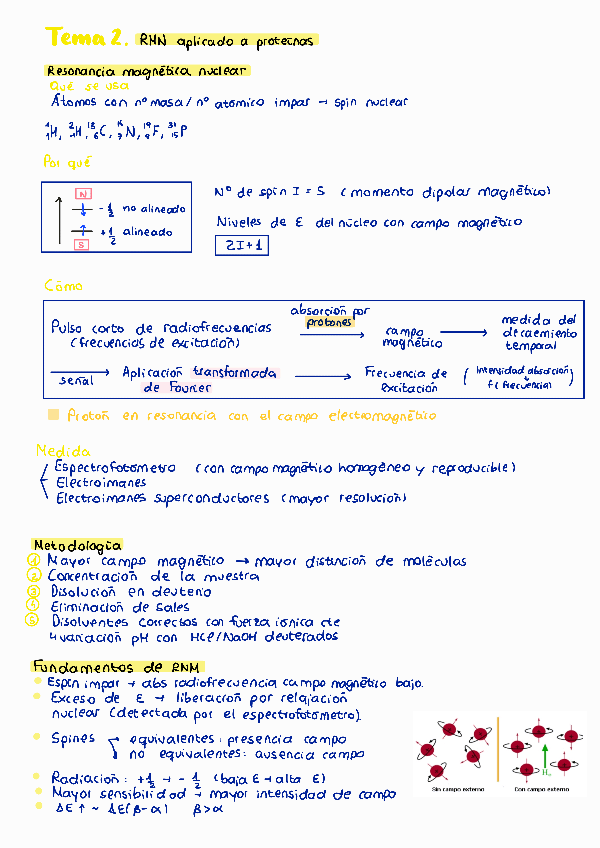 Tema 2. RMN aplicado a proteínas
Resonancia magnética nuclear
Qué se usa
Átomos con nº masa / nº atómico impar → spin nuclear
¹₁H, ²₁H, ¹³₆C, ¹⁵₇N, ¹⁹₉F, ³¹₁₅P
Por qué
N
↓ - 1/2 no alineado
↑ + 1/2 alineado
S
Nº de spin I = S (momento dipolar magnético)
Niveles de E del núcleo con campo magnético
2I+1
Cómo
Pulso corto de radiofrecuencias
(frecuencias de excitación)
absorción por
protones
campo
magnético
medida del
decaemiento
temporal
señal
Aplicación transformada
de Fourier
Frecuencia de
excitación
(Intensidad absorción
f (frecuencia))
Protón en resonancia con el campo electromagnético
Medida
Espectrofotómetro (con campo magnético homogéneo y reproducible)
Electroimanes
Electroimanes superconductores (mayor resolución)
Metodología
1 Mayor campo magnético → mayor distinción de moléculas
2 Concentración de la muestra
3 Disolución en deuterio
4 Eliminación de sales
5 Disolventes correctos con fuerza iónica cte
↳ variación pH con HCl/NaOH deuterados
Fundamentos de RNM
Espín impar → abs radiofrecuencia campo magnético bajo.
Exceso de E → liberación por relajación
nuclear (detectada por el espectrofotómetro).
Spines → equivalentes: presencia campo
no equivalentes: ausencia campo
Radiación: +1/2 → - 1/2 (baja E→alta E)
Mayor sensibilidad → mayor intensidad de campo
ΔE ↑ ~ ΔE(β-α) β>α
H₀
Sin campo externo
Con campo externo